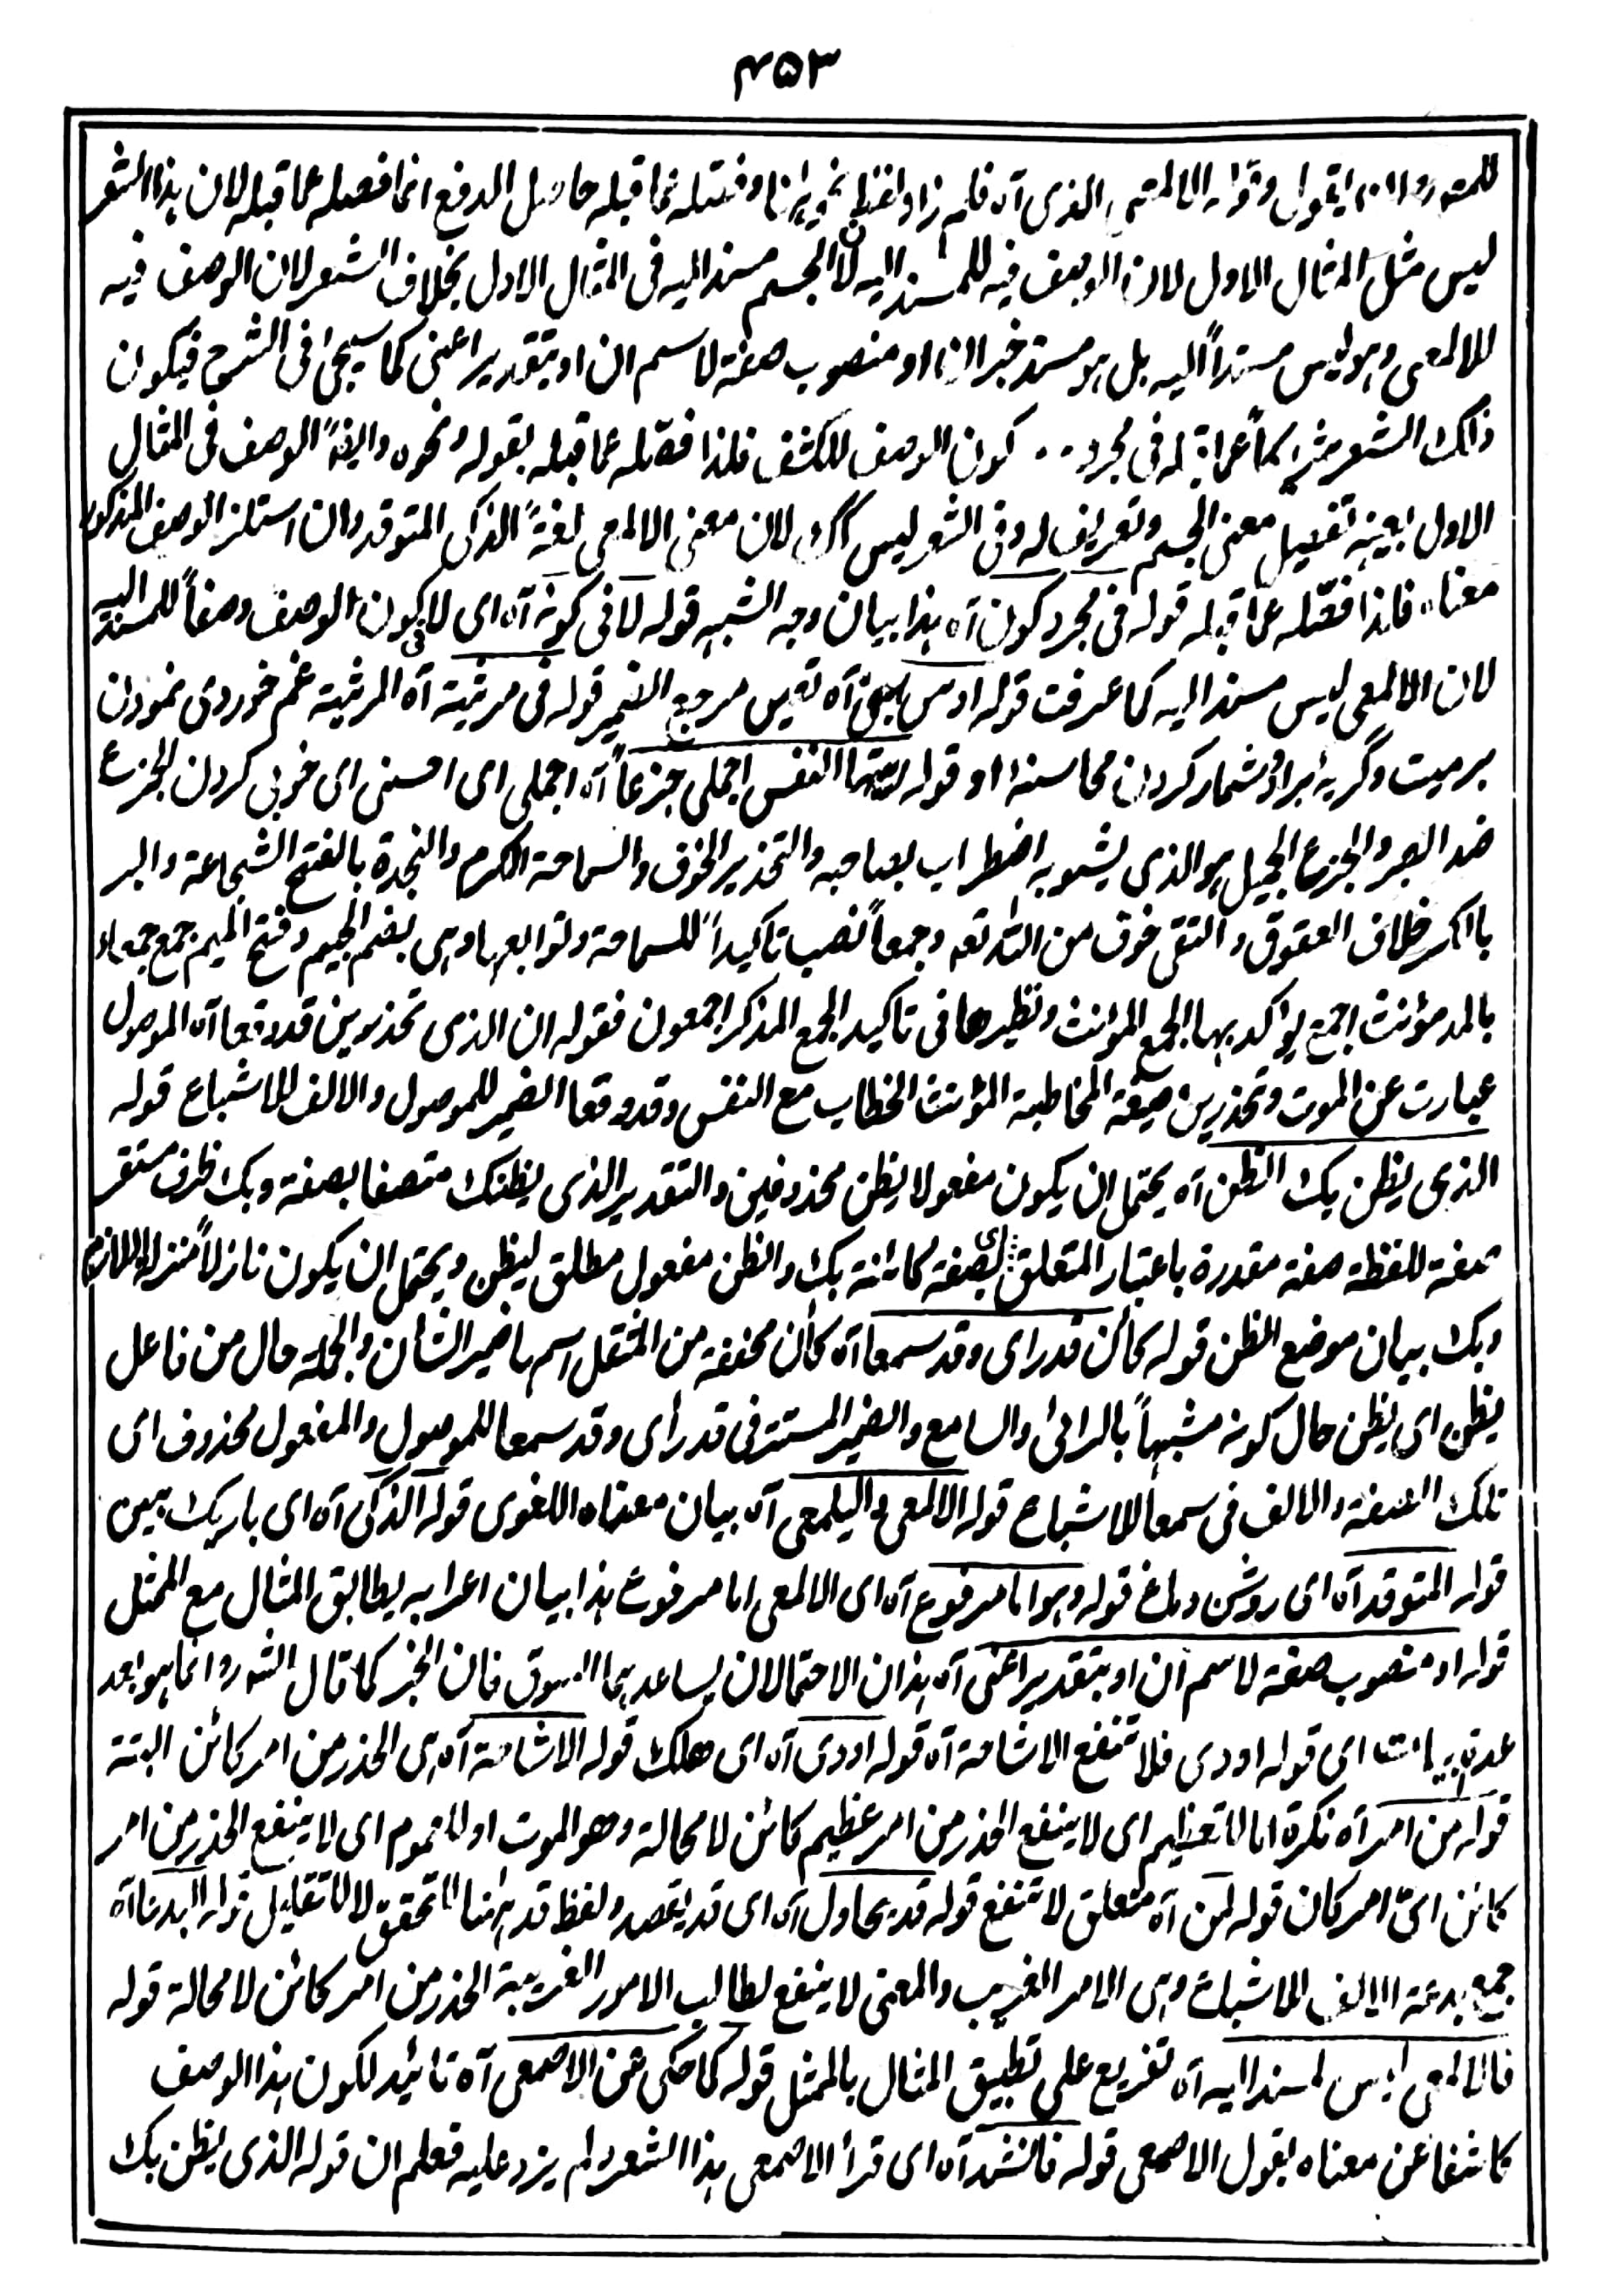 ۴۵۳
الذی آه فلم زاد لفظ نحوه هنا وفصله عما قبله حاصل الدفع انما فصله عما قبله لان هذا الشعر
لیس مثل المثال الاول لان الوصف فیه للمسند الیه لان الجسم مسند الیه فی المثال الاول بخلاف الشعر لان الوصف فیه
للالمعی وهو لیس مسنداً الیه بل هو مسند خبر ان او منصوب صفة لاسم ان او بتقدیر اعنی کما سیجئ فی الشرح فیکون
ذلک الشعر فی مجرد کون الوصف للکشف فلذا فصّله عما قبله بقوله ونحوه وایضاً الوصف فی المثال
الاول بعینه تفصیل معنی الجسم وتعریف له وفی الشعر لیس کک لان معنی الالمعی لغةً الذکی المتوقد وان استلزم الوصف المذکور
معناه فلذا فصّله عما قبله قوله فی مجرد کون آه هذا بیان وجه الشبه قوله لا فی کونه آه ای لا فی کون الوصف وصفاً للمسند الیه
لان الالمعی لیس مسند الیه کما عرفت قوله اوس آه تعیین مرجع الضمیر قوله فی مرثیة آه المرثیة غم خوردی نمودن
بر میت وگریه برا و شمار کردن محاسنه او قوله ایتها النفس اجملی جزعاً آه اجملی ای احسنی ای خوبی کردن الجزع
ضد الصبر والجزع الجمیل هو الذی یشوبه اضطراب بصاحبه والتحذیر الخوف والسماحة الکرم والنجدة بالفتح الشجاعة والبر
بالکسر خلاف العقوق والتقی خوف من الله تعه وجمعاً نصب تاکیداً للسماحة وتوابعها وهی بضم الجیم وفتح المیم جمع جمعاء
بالمد مؤنث اجمع یؤکد بها الجمع المؤنث ونظیرها فی تاکید الجمع المذکر اجمعون فقوله ان الذی تحذرین قد وقعا آه الموصول
عبارت عن الموت وتحذرین صیغة المخاطبة المؤنث الخطاب مع النفس وقد وقعا الضمیر للموصول والالف للاشباع قوله
الذی یظن بک الظن آه یحتمل ان یکون مفعولا یظن محذوفین والتقدیر الذی یظنک متصفا بصفة وبک ظرف مستقر
صفة للفظة صفة مقدرة باعتبار المتعلق ای بصفة کائنة بک والظن مفعول مطلق لیظن ویحتمل ان یکون نازلاً منزلة اللازم
وبک بیان موضع الظن قوله کأن قد رای وقد سمعا آه کأن مخففة من المثقل اسمها ضمیر الشان والجملة حال من فاعل
یظن ای یظن حال کونه مشبهاً بالرائی والسامع والضمیر المستتر فی قد رأی وقد سمعا للموصول والمفعول محذوف ای
تلک الصفة والالف فی سمعا للاشباع قوله الالمعی والیلمعی آه بیان معناه اللغوی قوله الذکی آه ای باریک بین
قوله المتوقد آه ای روشن دماغ قوله وهو اما مرفوع آه ای الالمعی اما مرفوع هذا بیان اعرابه یطابق المثال مع الممثل
قوله او منصوب صفة لاسم ان او بتقدیر اعنی آه هذان الاحتمالان یساعدهما السوق فان الخبر کما قال الشه ره انما هو بعد
عدة ابیات ای قوله اودی فلا تنفع الاشاحة آه قوله اودی آه ای هلک قوله الاشاحة آه هی الحذر من امر کائن البتة
قوله من امر آه نکرة اما للتعظیم ای لا ینفع الحذر من امر عظیم کائن لا محالة وهو الموت او للعموم ای لا ینفع الحذر من امر
کائن ایّ امر کان قوله لمن آه متعلق لا تنفع قوله قد یحاول آه ای قد یقصد ولفظ قد ههنا للتحقق لا للتقلیل قوله البدعا آه
جمع بدعة الالف للاشباع وهی الامر الغریب والمعنی لا ینفع لطالب الامور الغریبة الحذر من امر کائن لا محالة قوله
فالالمعی لیس لمسند الیه آه تفریع علی تطبیق المثال بالممثل قوله کما حکی عن الاصمعی آه تائید لکون هذا الوصف
کاشفا عن معناه بقول الاصمعی قوله فانشد آه ای قرأ الاصمعی هذا الشعر ولم یزد علیه فعلم ان قوله الذی یظن بک